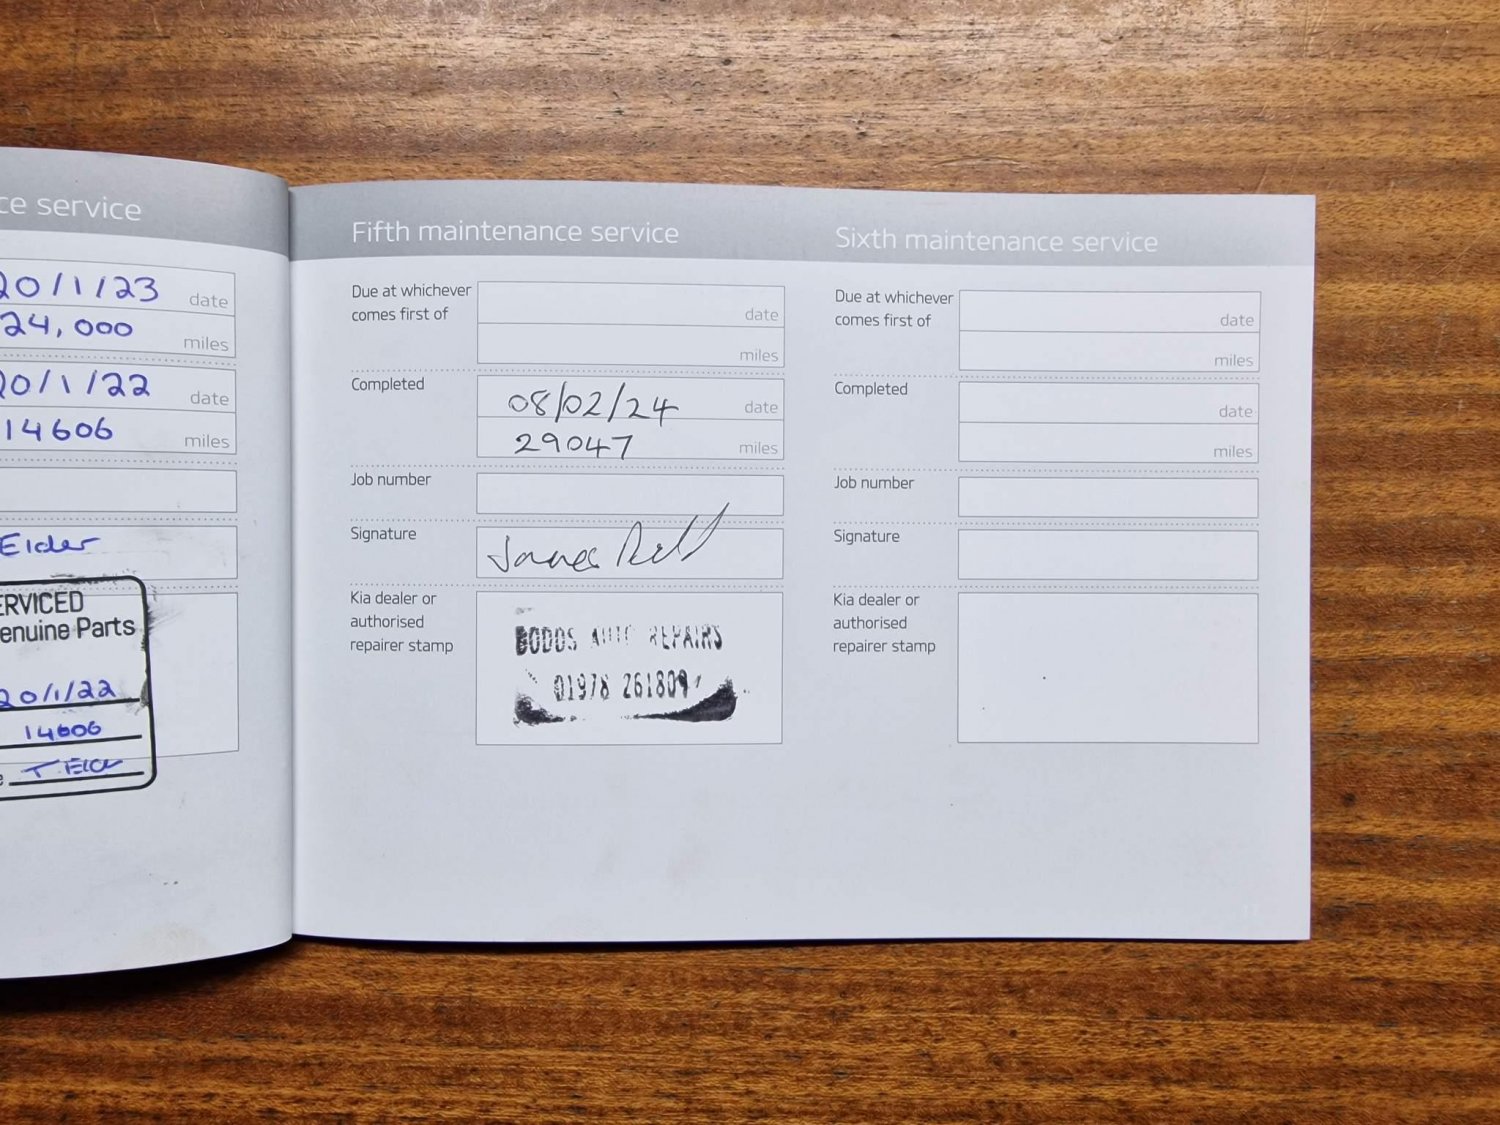 ce service
20/1/23 date
24,000 miles
20/1/22 date
14606 miles
Elder
ERVICED
enuine Parts
20/1/22
14606
e T Elder
Fifth maintenance service
Due at whichever
comes first of
date
miles
Completed
08/02/24 date
29047 miles
Job number
Signature
James
Kia dealer or
authorised
repairer stamp
BODOS AUTO REPAIRS
01978 261809
Sixth maintenance service
Due at whichever
comes first of
date
miles
Completed
date
miles
Job number
Signature
Kia dealer or
authorised
repairer stamp